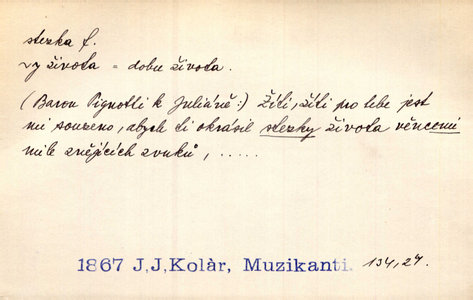 stezka f.
~y života = dobu života.
(Baron Pignotti k Juliáně:) Žíti, žíti pro tebe jest
mi souzeno, abych ti okrášlil stezky života věncemi
mile znějících zvuků, . . . . .
1867 J,J,Kolàr, Muzikanti. 134,27.